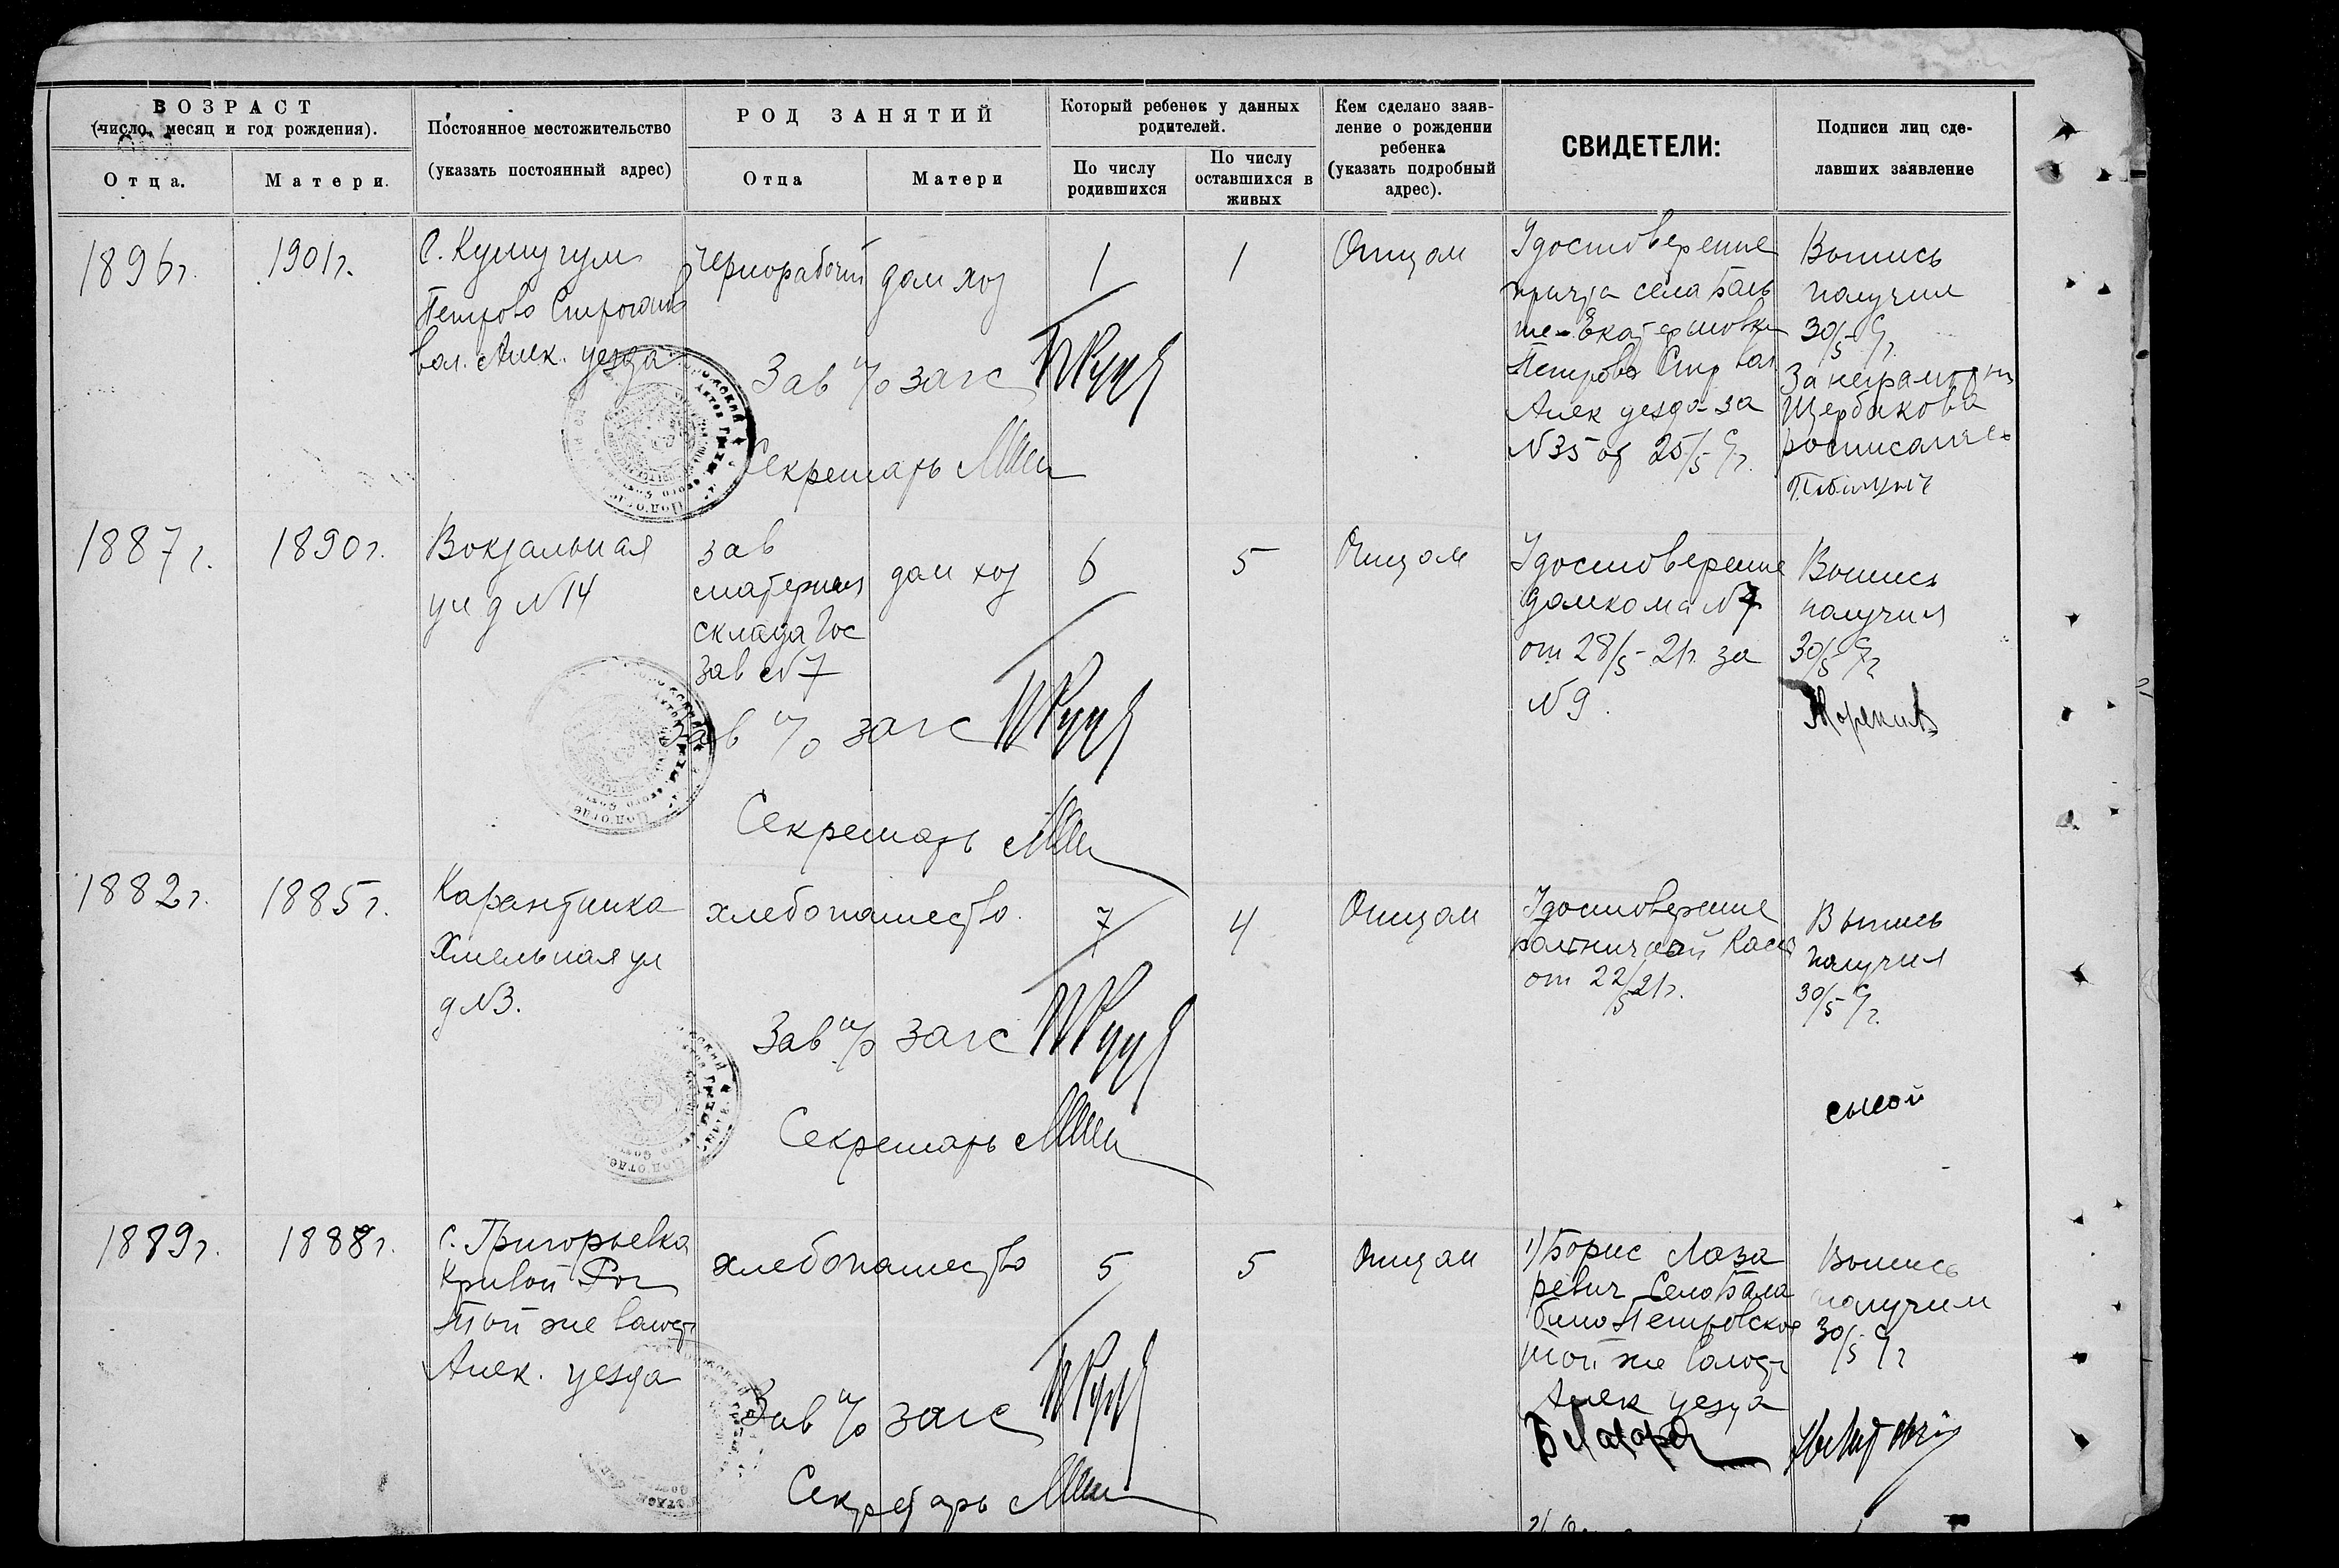 ВОЗРАСТ
(число, месяц и год рождения).
Отца.
Матери.
Постоянное местожительство
(указать постоянный адрес)
РОД ЗАНЯТИЙ
Отца
Матери
Который ребенок у данных
родителей.
По числу
родившихся
По числу
оставшихся в
живых
Кем сделано заяв-
ление о рождении
ребенка
(указать подробный
адрес).
СВИДЕТЕЛИ:
Подписи лиц сде-
лавших заявление
1896г.
1901г.
С. Кушугум
Петрово
вол. Алек. уезда
чернорабочий
дом хоз
1
1
Отцом
Удостоверение
села
Алек уезда за
N35 от 25/5 с/г.
Выпись
получил
30/5 с/г.
За неграмотн
Щербакова
росписался
Зав п/о загс
Секретарь
1887г.
1890г.
Вокзальная
ул д N14
зав
материал
склада Гос
зав N7
дом хоз
6
5
Отцом
Удостоверение
домкома N7
от 28/5-21г. за
N9.
Выпись
получил
30/5 с/г
Зав п/о загс
Секретарь
1882г.
1885г.
Карантинка
Хмельная ул
д N3.
хлебопашество
7
4
Отцом
Удостоверение
больничной Кассы
от 22/5 21г.
Выпись
получил
30/5 с/г.
Зав п/о загс
Секретарь
1889г.
1888г.
с. Григорьевка
Кривой Рог
той же волост
Алек. уезда
хлебопашество
5
5
Отцом
1) Борис Лаза
ревич Село Бала
бино Петровское
той же волост
Алек уезда
Выпись
получил
30/5 с/г
Зав п/о загс
Секретарь